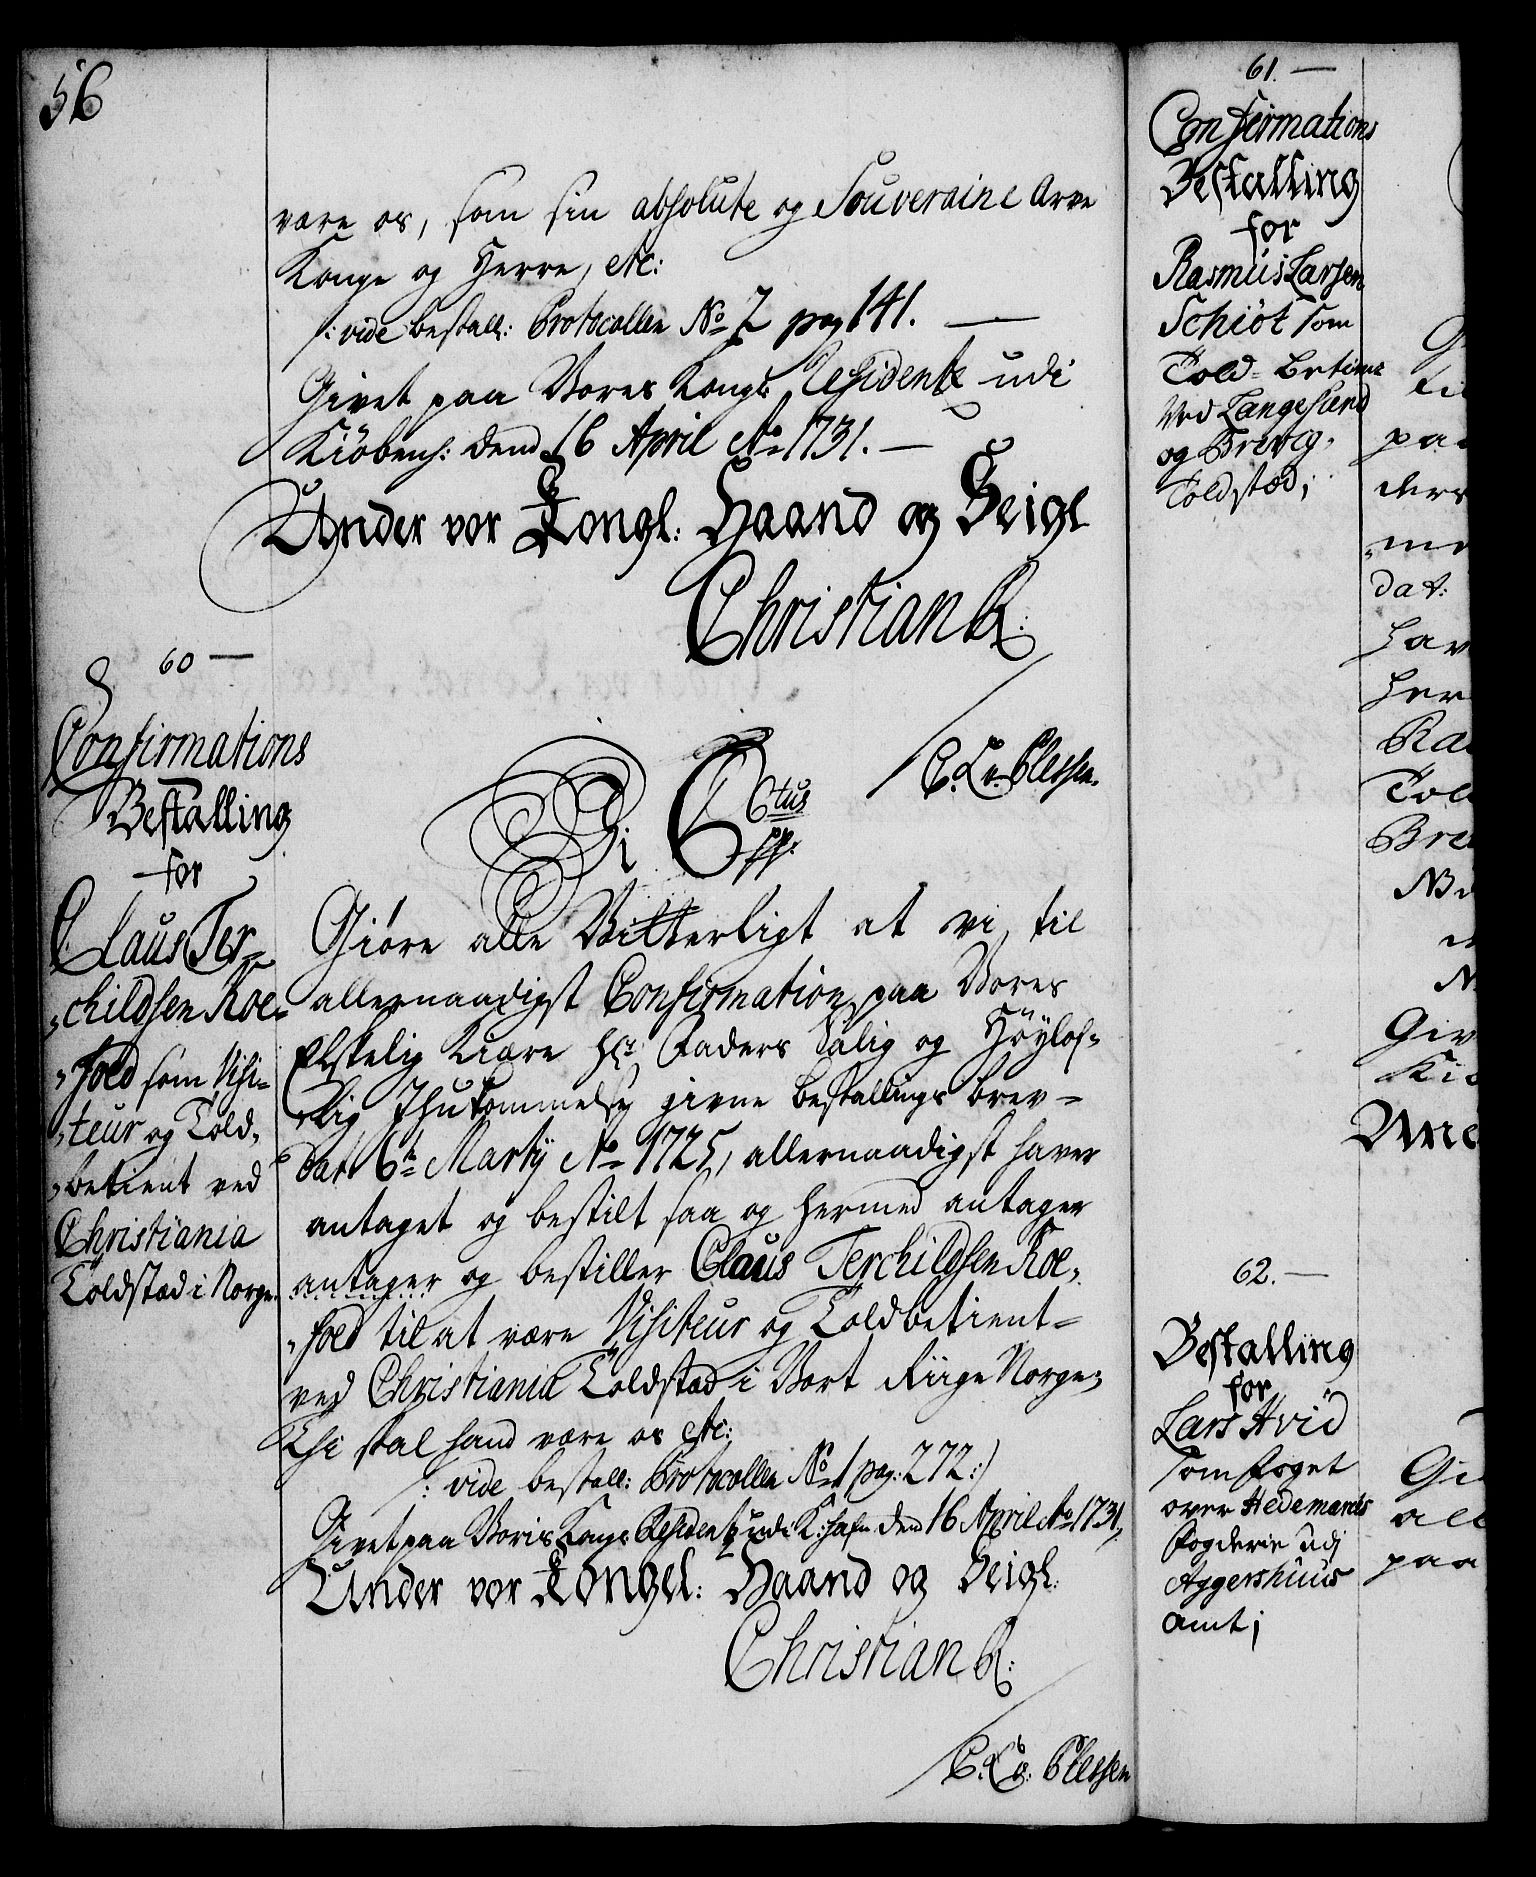 56
være os, som sin absolute og Souveraine Arve
Konge og Herre, etc:
/: vide bestall: Protocollen No 2 pag 141. —
Givet paa Vores Kongl: Residentz udi
Kiöbenh: dend 16 April Ao 1731. —
Under vor Kongl: Haand og Seigl
Christian R:
C. A. v. Plessen.
60 —
Confirmations
Bestalling
for
Claus Ter-
childsen Roe-
fold som Visi-
teur og Told-
betient ved
Christiania
Toldstæd i Norge.
Vi C 6tus
pp.
Giöre alle Vitterligt at vi, til
allernaadigst Confirmation paa Vores
Elskelig Kiære Hr Faders Salig og Höylof-
lig Ihukommelse givne bestallings brev-
dat: 6te Martij Ao 1725, allernaadigst haver
antaget og bestilt saa og hermed antager
antager og bestiller Claus Terchildsen Roe-
fold til at være Visiteur og Toldbetient-
ved Christiania Toldstæd i Vort Riige Norge;
Thi skal hand være os etc:
/: vide bestall: Protocollen No 1 pag: 272:/
Givet paa Voris Kongl Residentz udi K:hafn dend 16 April Ao 1731,
Under vor Kongel: Haand og Seigl:
Christian R:
C. A. v: Plessen
61. —
Confirmations
Bestalling
for
Rasmus Larsen
Schiöt som
Told-betient
Ved Langesund
og Brevig,
Toldstæd;
62. —
Bestalling
for
Lars Hvid
som foget
over Hedemarcks
fogderie udj
Aggershuus
amt;
paa
ders
dat:
hav
her
Ra
Tol
Bre
Giv
Kiö
Und
Gi
all
paa